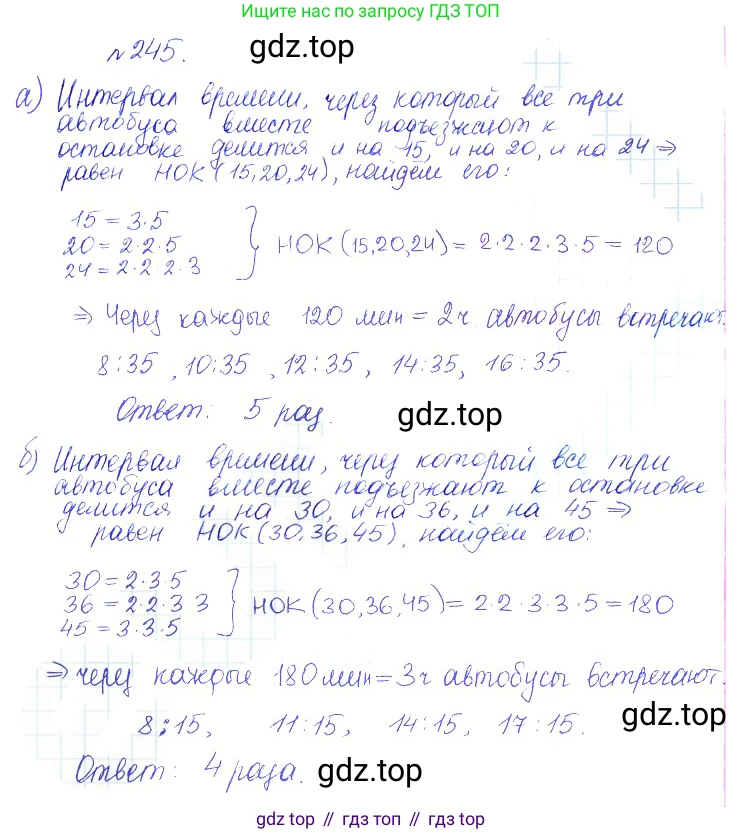 Ищите нас по запросу ГДЗ ТОП
№ 245.
gdz.top
а) Интервал времени, через который все три
автобуса вместе подъезжают к
остановке делится и на 15, и на 20, и на 24 ⇒
равен НОК (15,20,24), найдём его:
15 = 3·5
20 = 2·2·5
24 = 2·2·2·3
} НОК (15,20,24) = 2·2·2·3·5 = 120
⇒ Через каждые 120 мин = 2ч автобусы встречают.
8:35, 10:35, 12:35, 14:35, 16:35.
Ответ: 5 раз.
gdz.top
б) Интервал времени, через который все три
автобуса вместе подъезжают к остановке
делится и на 30, и на 36, и на 45 ⇒
равен НОК (30,36,45), найдём его:
30 = 2·3·5
36 = 2·2·3·3
45 = 3·3·5
} НОК (30,36,45) = 2·2·3·3·5 = 180
⇒ через каждые 180 мин = 3ч автобусы встречают.
8:15, 11:15, 14:15, 17:15.
gdz.top
Ответ: 4 раза.
gdz.top
gdz top // гдз топ // gdz.top